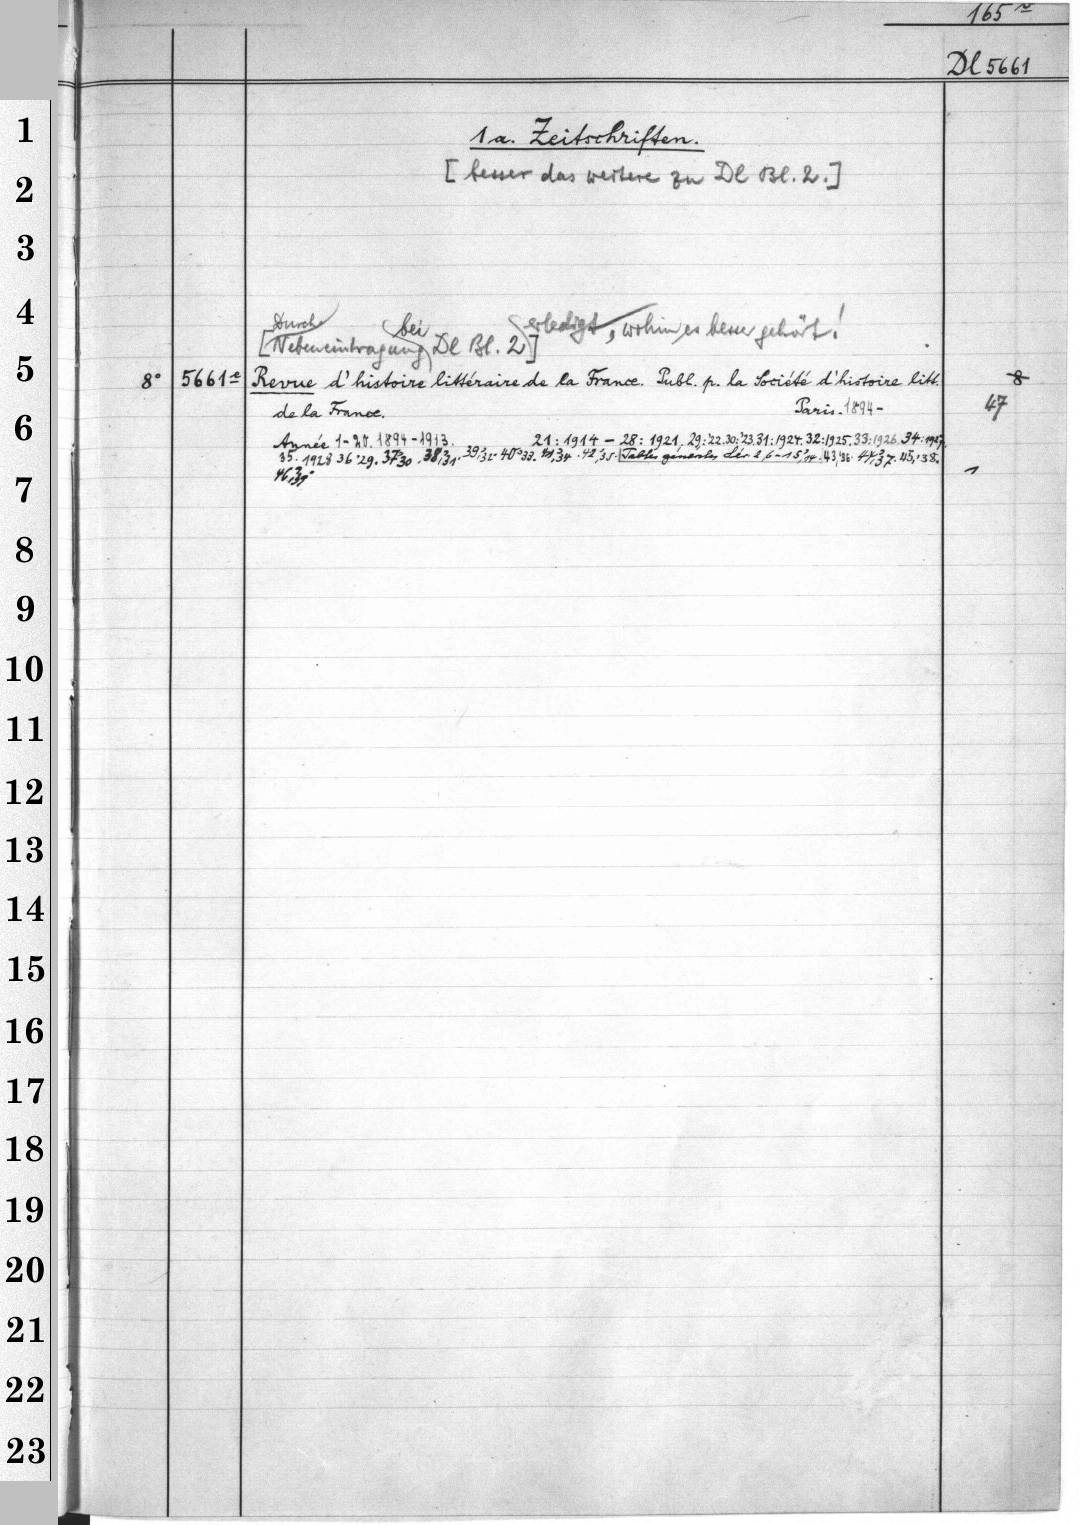 165
Dl 5661
1
1a. Zeitschriften.
2
[besser das weitere zu Dl Bl. 2.]
3
4
Durch bei erledigt, wohin es besser gehört!
[Nebeneintragung Dl Bl. 2]
5
8° 5661ᵉ Revue d'histoire littéraire de la France. Publ. p. la Société d'histoire litt. 8
de la France. Paris. 1894- 47
6
Année 1-20. 1894-1913. 21: 1914 - 28: 1921. 29:'22. 30:'23. 31: 1924. 32: 1925. 33: 1926. 34: 1927.
35. 1928 36 '29. 37,'30. 38,'31. 39,'32. 40,'33. 41,'34. 42,'35. Tables générales 43,'36. 44,'37. 45,'38. 1
7
46,'39
8
9
10
11
12
13
14
15
16
17
18
19
20
21
22
23